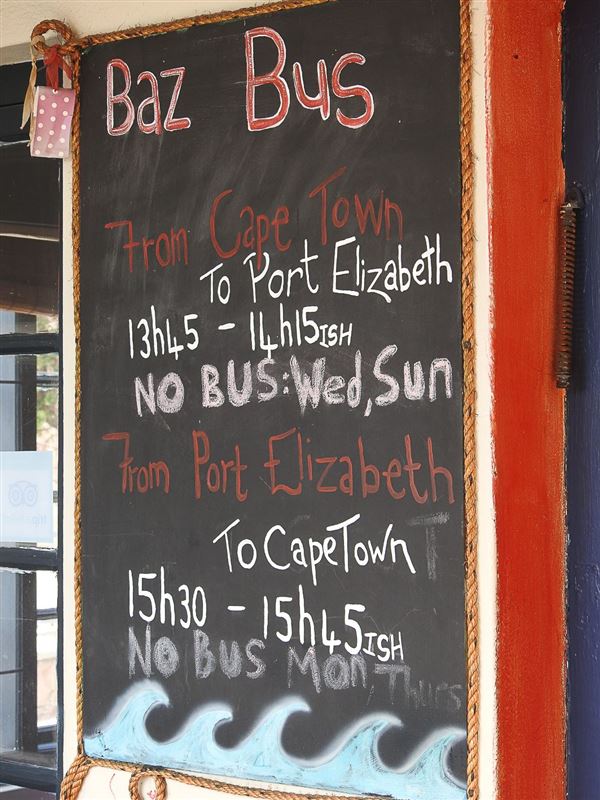 Baz Bus
From Cape Town
To Port Elizabeth
13h45 - 14h15ISH
NO BUS: Wed, Sun
From Port Elizabeth
To Cape Town T
15h30 - 15h45ISH
No Bus Mon, Thurs